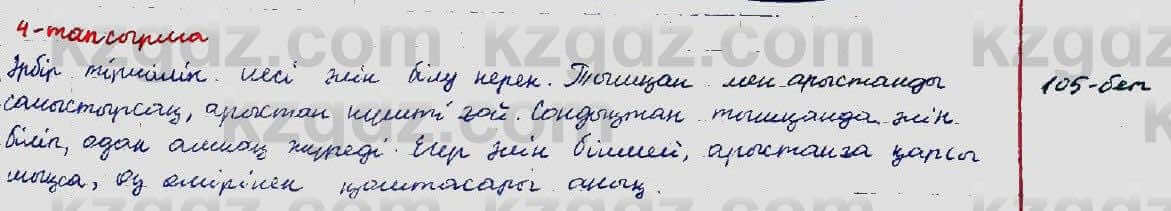 4-тапсырма
Әрбір тіршілік иесі әлін білу керек. Тышқан мен арыстанды 105-бет
салыстырсақ, арыстан күшті ғой. Сондықтан тышқанда әлін
біліп, одан алшақ жүреді. Егер әлін білмей, арыстанға қарсы
шықса, өз өмірінен қоштасары анық.